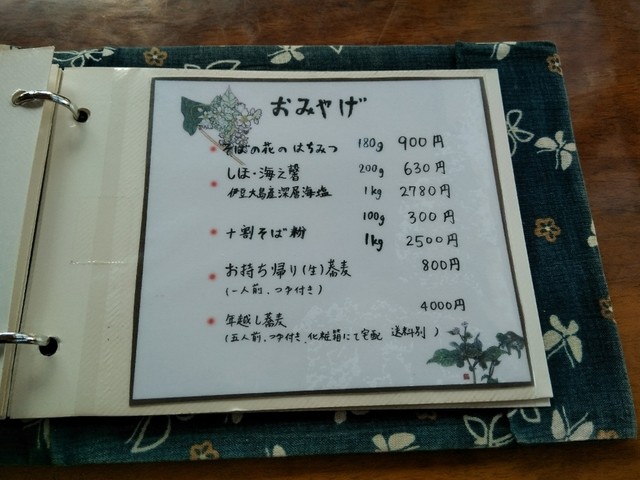 おみやげ
そばの花のはちみつ 180g 900円
しほ・海之馨 200g 630円
伊豆大島産深層海塩 1kg 2780円
100g 300円
十割そば粉 1kg 2500円
お持ち帰り(生)蕎麦 800円
(一人前、つゆ付き)
4000円
年越し蕎麦
(五人前、つゆ付き、化粧箱にて宅配 送料別)